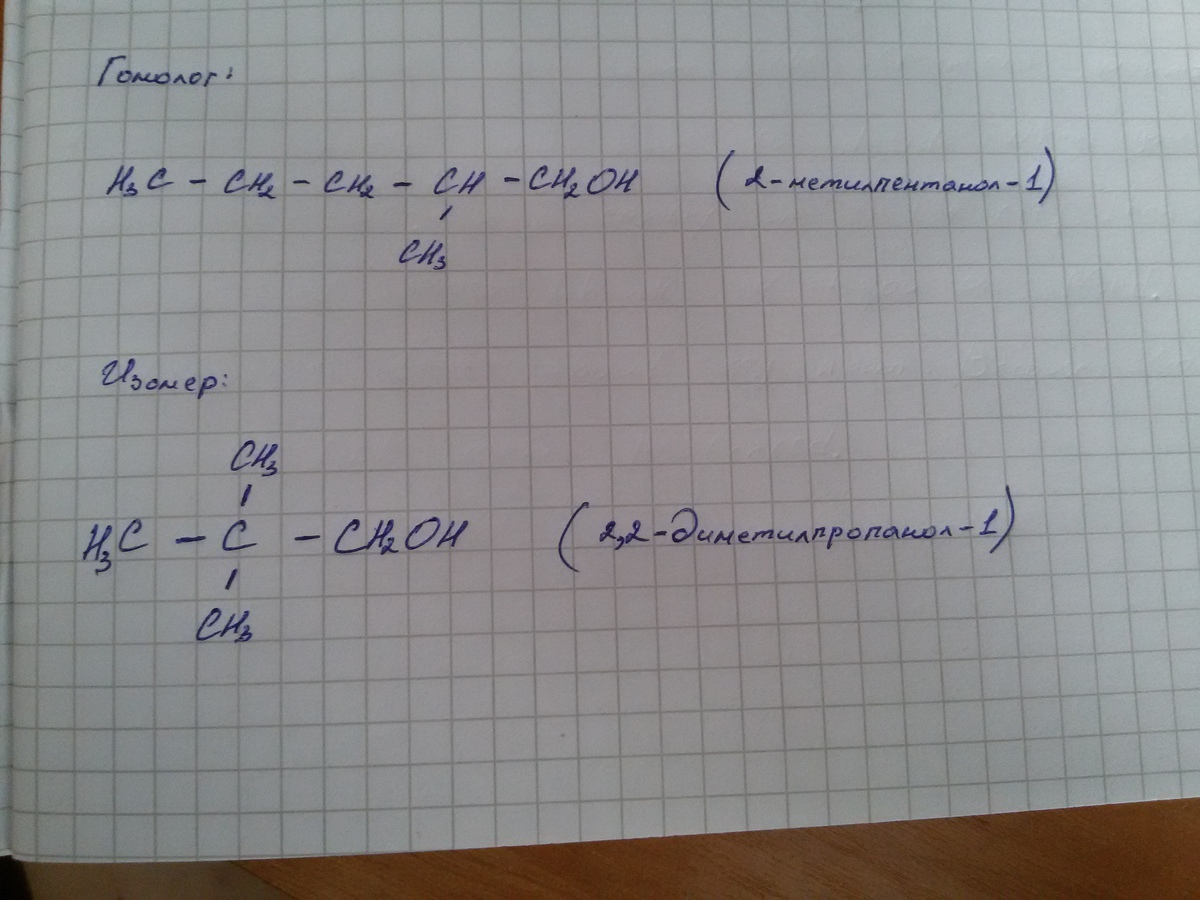 Гомолог:
H₃C – CH₂ – CH₂ – CH – CH₂OH (2-метилпентанол-1)
CH₃
Изомер:
CH₃
H₃C – C – CH₂OH (2,2-диметилпропанол-1)
CH₃